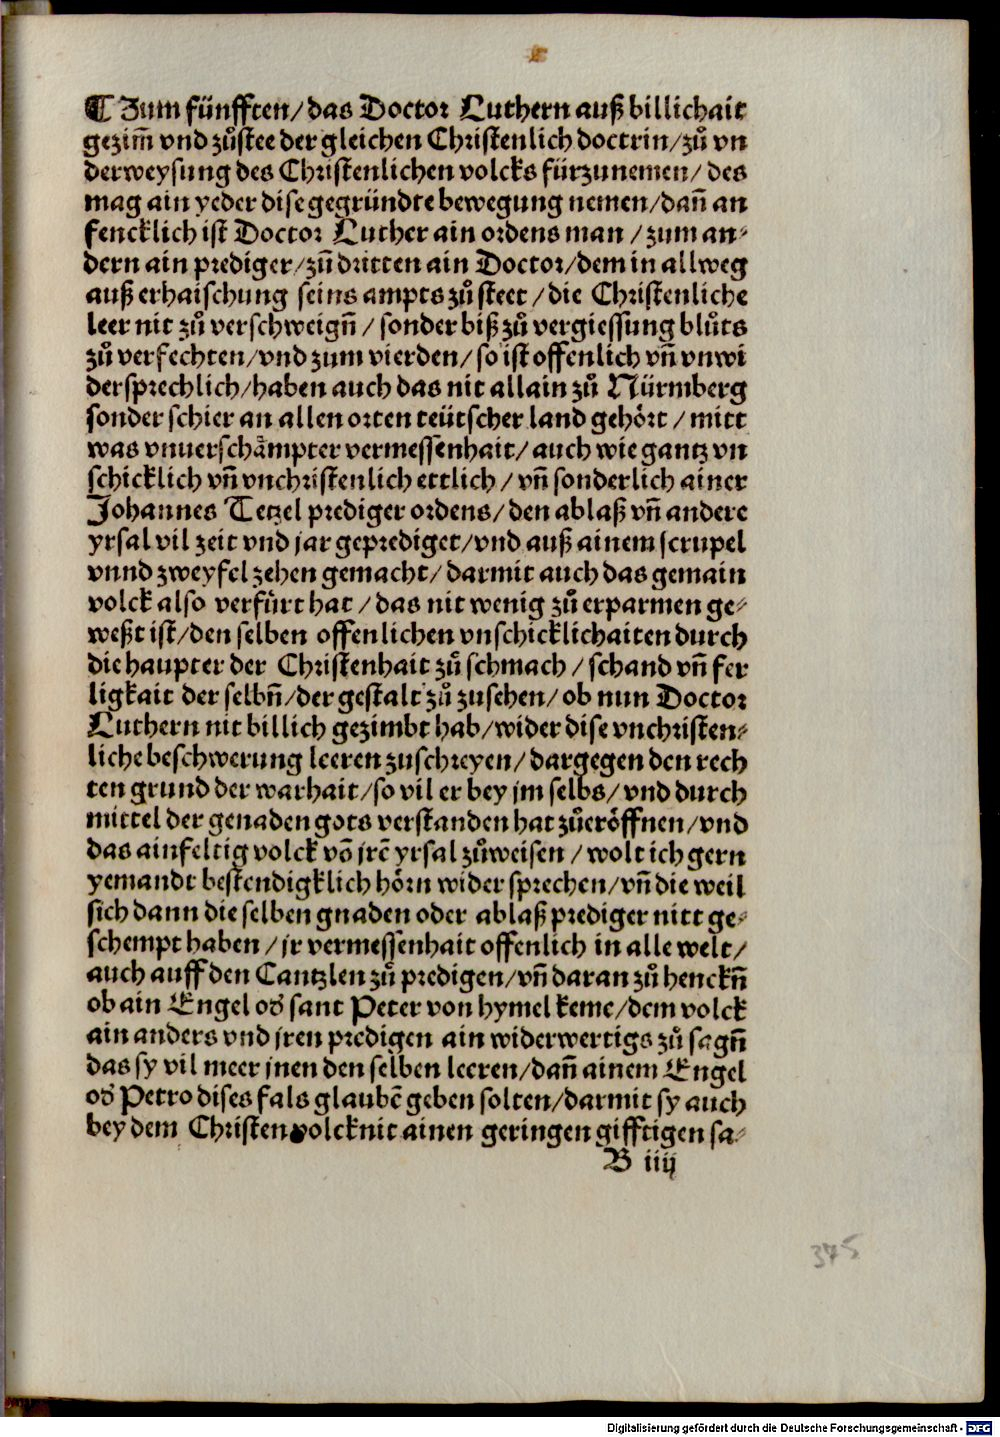 ¶ Zum fünfften/das Doctor Luthern auß billichait
gezim̃ vnd zůstee der gleichen Christenlich doctrin/zů vn
derweysung des Christenlichen volcks fürzunemen/des
mag ain yeder dise gegründte bewegung nemen/dañ an
fencklich ist Doctor Luther ain ordens man/zum an⸗
dern ain prediger/zũ dritten ain Doctor/dem in allweg
auß erhaischung seins ampts zů steet/die Christenliche
leer nit zů verschweigñ/sonder biß zů vergiessung blůts
zů verfechten/vnd zum vierden/so ist offenlich vñ vnwi
dersprechlich/haben auch das nit allain zů Nürmberg
sonder schier an allen orten teütscher land gehört/mitt
was vnuerschåmpter vermessenhait/auch wie gantz vn
schicklich vñ vnchristenlich ettlich/vñ sonderlich ainer
Johannes Tetzel prediger ordens/den ablaß vñ andere
yrsal vil zeit vnd jar geprediget/vnd auß ainem scrupel
vnnd zweyfel zehen gemacht/darmit auch das gemain
volck also verfürt hat/das nit wenig zů erparmen ge⸗
weßt ist/den selben offenlichen vnschicklichaiten durch
die haupter der Christenhait zů schmach/schand vñ fer
ligkait der selbñ/der gestalt zů zusehen/ob nun Doctor
Luthern nit billich gezimbt hab/wider dise vnchristen⸗
liche beschwerung leeren zuschreyen/dargegen den rech
ten grund der warhait/so vil er bey jm selbs/vnd durch
mittel der genaden gots verstanden hat zůeröffnen/vnd
das ainfeltig volck võ jrẽ yrsal zůweisen/wolt ich gern
yemandt bestendigklich hörn wider sprechen/vñ die weil
sich dann die selben gnaden oder ablaß prediger nitt ge⸗
schempt haben/jr vermessenhait offenlich in alle welt/
auch auff den Cantzlen zů predigen/vñ daran zů henckñ
ob ain Engel od̕ sant Peter von hymel keme/dem volck
ain anders vnd jren predigen ain widerwertigs zů sagñ
das sy vil meer jnen den selben leeren/dañ ainem Engel
od̕ Petro dises fals glaubẽ geben solten/darmit sy auch
bey dem Christen volck nit ainen geringen gifftigen sa⸗
B iiij
375
Digitalisierung gefördert durch die Deutsche Forschungsgemeinschaft - DFG